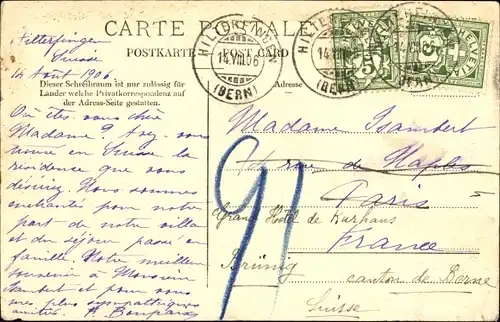 CARTE POSTALE
POSTKARTE POST CARD
HILTERFINGEN
14.VIII.06
(BERN)
HILTERFINGEN
14.VIII
(BERN)
5
HELVETIA
5
HELVETIA
Hilterfingen
Suisse
14 Août 1906
Dieser Schreibraum ist nur zulässig für
Länder welche Privatkorrespondenz auf
der Adress-Seite gestatten.
Adresse
Où êtes vous chère
Madame? Avez-vous
trouvé en Suisse la
résidence que vous
désiriez. Nous sommes
enchantés pour notre
part de notre villa
et du séjour passé en
famille. Notre meilleur
souvenir à Monsieur
et pour vous
mes plus sympathiques
amitiés.
Madame Isambert
rue de Naples
Paris
France
Grand Hôtel de Kurhaus
Brünig
canton de Berne
Suisse
91